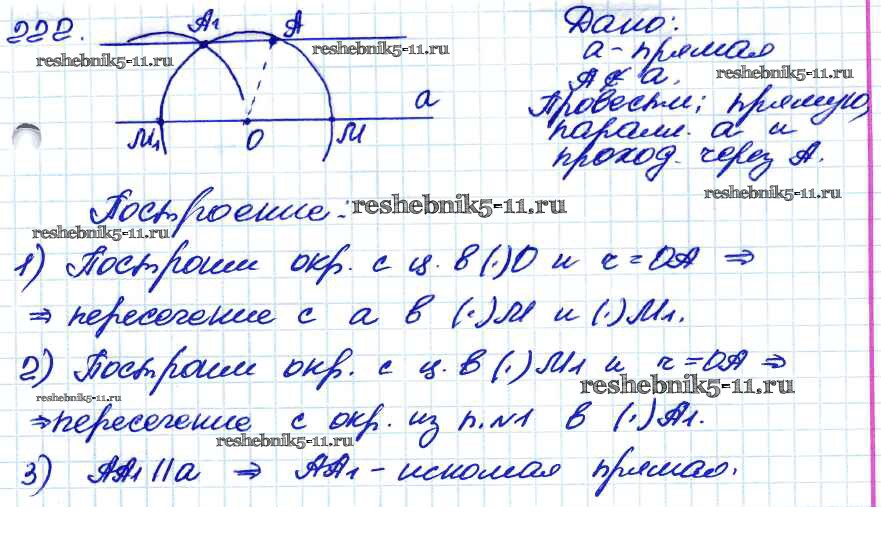 222.
A₁ A
a
M₁ O M
Дано:
a - прямая
A ∉ a.
Провести: прямую,
паралл. a и
проход. через A.
reshebnik5-11.ru
reshebnik5-11.ru
reshebnik5-11.ru
reshebnik5-11.ru
Построение:
reshebnik5-11.ru
reshebnik5-11.ru
1) Построим окр. с ц. в (·)O и r = OA ⇒
⇒ пересечение с a в (·)M и (·)M₁.
2) Построим окр. с ц. в (·)M₁ и r = OA ⇒
reshebnik5-11.ru
reshebnik5-11.ru
⇒ пересечение с окр. из п.№1 в (·)A₁.
reshebnik5-11.ru
3) AA₁ || a ⇒ AA₁ - искомая прямая.